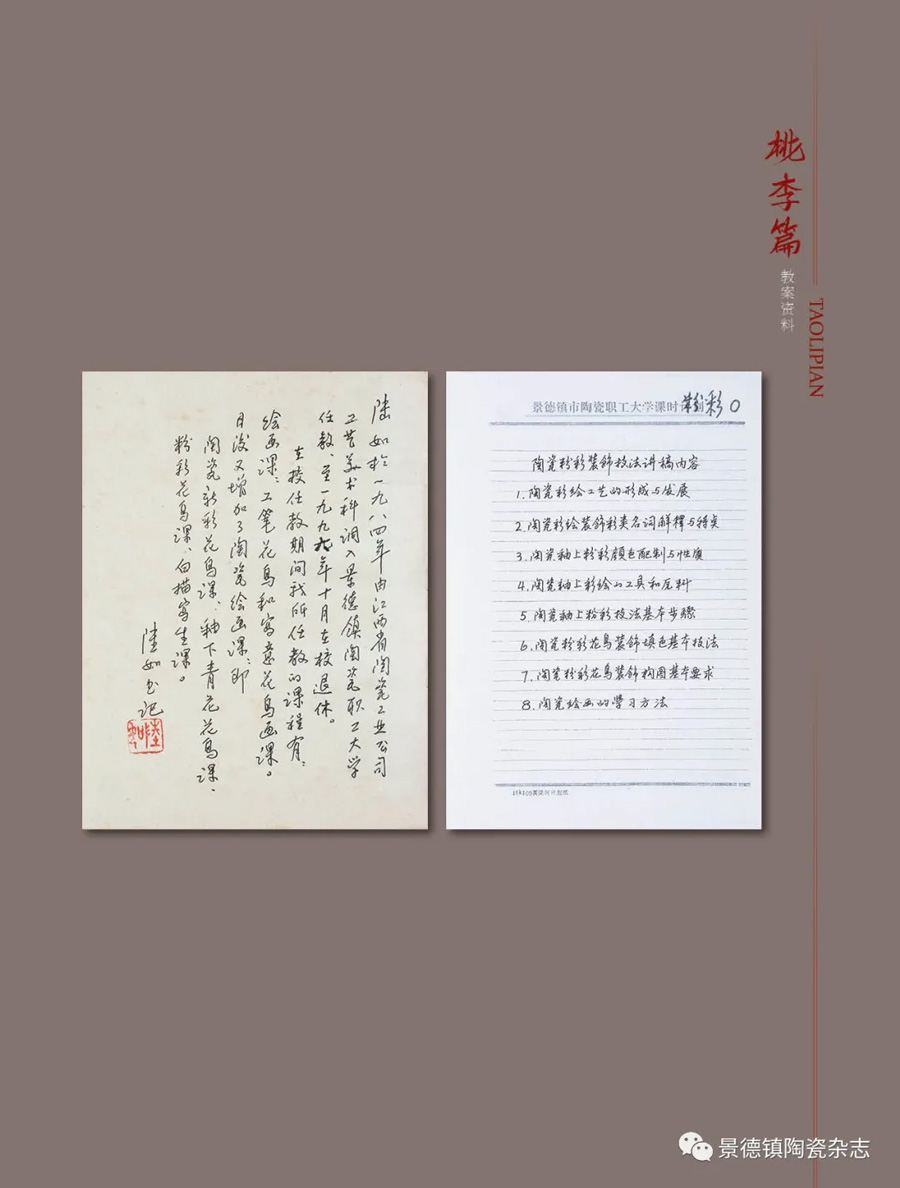 桃李篇
教案资料
TAOLIPIAN
陆如於一九八四年由江西省陶瓷工业公司
工艺美术科调入景德镇陶瓷职工大学
任教、至一九九六年十月在校退休。
在校任教期间我所任教的课程有：
绘画课：工笔花鸟和写意花鸟画课。
日后又增加了陶瓷绘画课：即
陶瓷新彩花鸟课、釉下青花花鸟课、
粉彩花鸟课、白描写生课。
陸如书记
景德镇市陶瓷职工大学课时计划
粉彩
陶瓷粉彩装飾技法讲稿内容
1.陶瓷彩绘工艺的形成与发展
2.陶瓷彩绘装飾彩类名词解釋与特点
3.陶瓷釉上粉彩颜色配制与性质
4.陶瓷釉上彩绘的工具和原料
5.陶瓷釉上粉彩技法基本步骤
6.陶瓷粉彩花鸟装飾填色基本技法
7.陶瓷粉彩花鸟装飾构图基本要求
8.陶瓷绘画的學习方法
景德镇陶瓷杂志